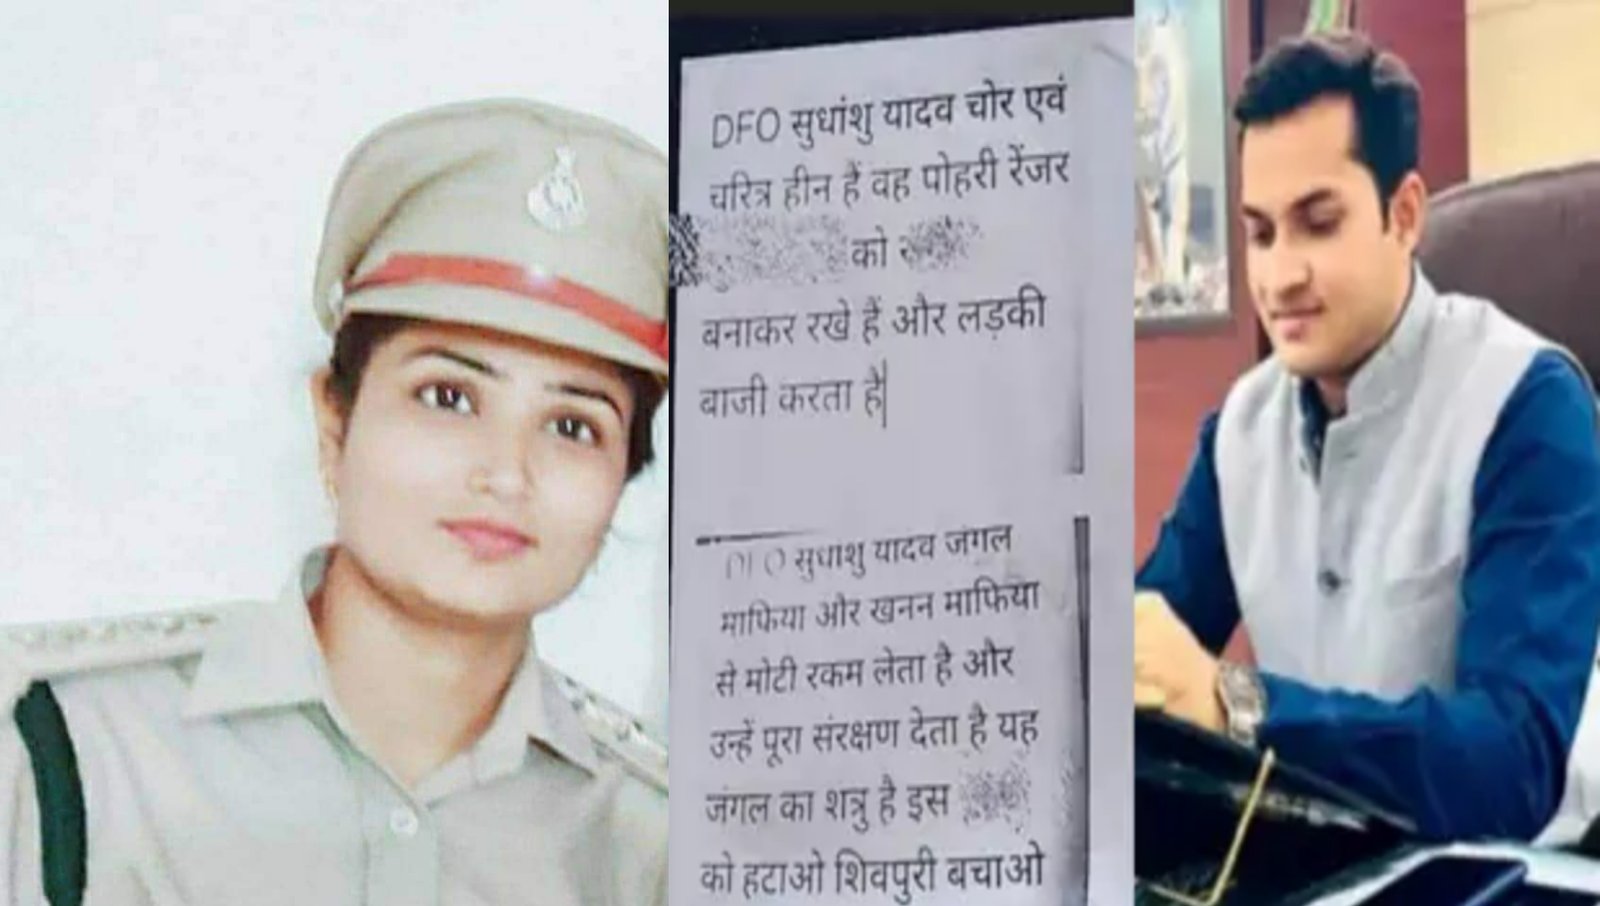 DFO सुधांशु यादव चोर एवं
चरित्र हीन हैं वह पोहरी रेंजर
को
बनाकर रखे हैं और लड़की
बाजी करता है
सुधांशु यादव जंगल
माफिया और खनन माफिया
से मोटी रकम लेता है और
उन्हें पूरा संरक्षण देता है यह
जंगल का शत्रु है इस
को हटाओ शिवपुरी बचाओ